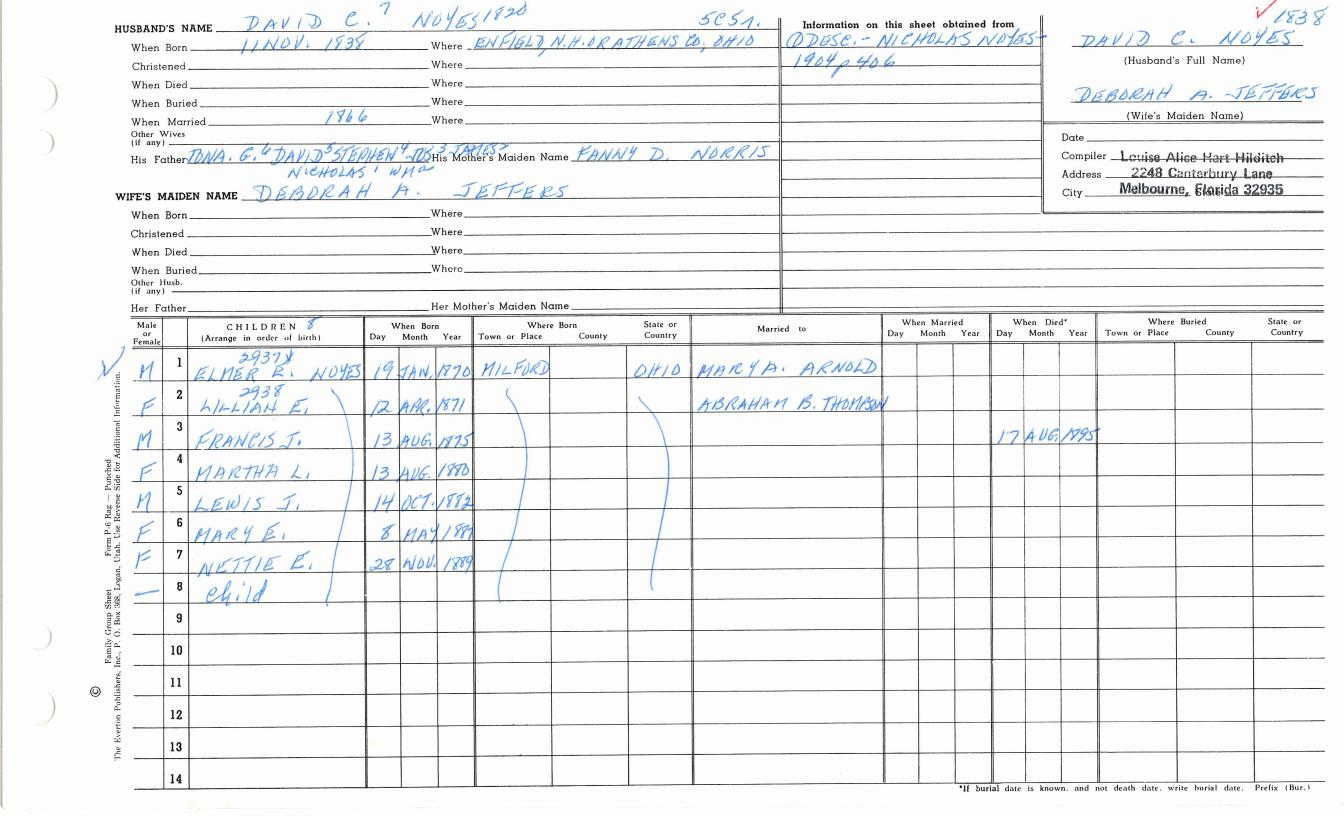 HUSBAND'S NAME DAVID C. 7 NOYES 1820 5C5r.
When Born 11 NOV. 1838 Where ENFIELD, N.H. OR ATHENS CO, OHIO
Christened Where
When Died Where
When Buried Where
When Married 1866 Where
Other Wives
(if any)
His Father JONA. G.6 DAVID5 STEPHEN4 3 JAMES2 His Mother's Maiden Name FANNY D. NORRIS
NICHOLAS1 WMa
WIFE'S MAIDEN NAME DEBORAH A. JEFFERS
When Born Where
Christened Where
When Died Where
When Buried Where
Other Husb.
(if any)
Her Father Her Mother's Maiden Name
Information on this sheet obtained from
① DESC. - NICHOLAS NOYES -
1904 p 406
✓ 1838
DAVID C. NOYES
(Husband's Full Name)
DEBORAH A. JEFFERS
(Wife's Maiden Name)
Date
Compiler Louise Alice Hart Hilditch
Address 2248 Canterbury Lane
City Melbourne, Florida 32935
Male or Female CHILDREN 8 (Arrange in order of birth) When Born Day Month Year Where Born Town or Place County State or Country Married to When Married Day Month Year When Died* Day Month Year Where Buried Town or Place County State or Country
2937
✓ M 1 ELMER E. NOYES 19 JAN. 1870 MILFORD OHIO MARY A. ARNOLD
2938
F 2 LILLIAN E. 12 APR. 1871 ABRAHAM B. THOMPSON
M 3 FRANCIS J. 13 AUG. 1875 17 AUG. 1895
F 4 MARTHA L. 13 AUG. 1880
M 5 LEWIS J. 14 OCT. 1882
F 6 MARY E. 8 MAY
F 7 NETTIE E. 28 NOV. 1889
— 8 child
9
10
11
12
13
14
*If burial date is known, and not death date, write burial date. Prefix (Bur.)
Family Group Sheet Form P-6 Rag — Punched
© The Everton Publishers, Inc., P. O. Box 368, Logan, Utah. Use Reverse Side for Additional Information.